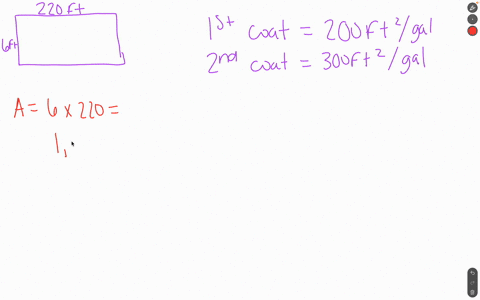 220 ft
6ft
1st coat = 200ft²/gal
2nd coat = 300ft²/gal
A = 6 x 220 =
1,